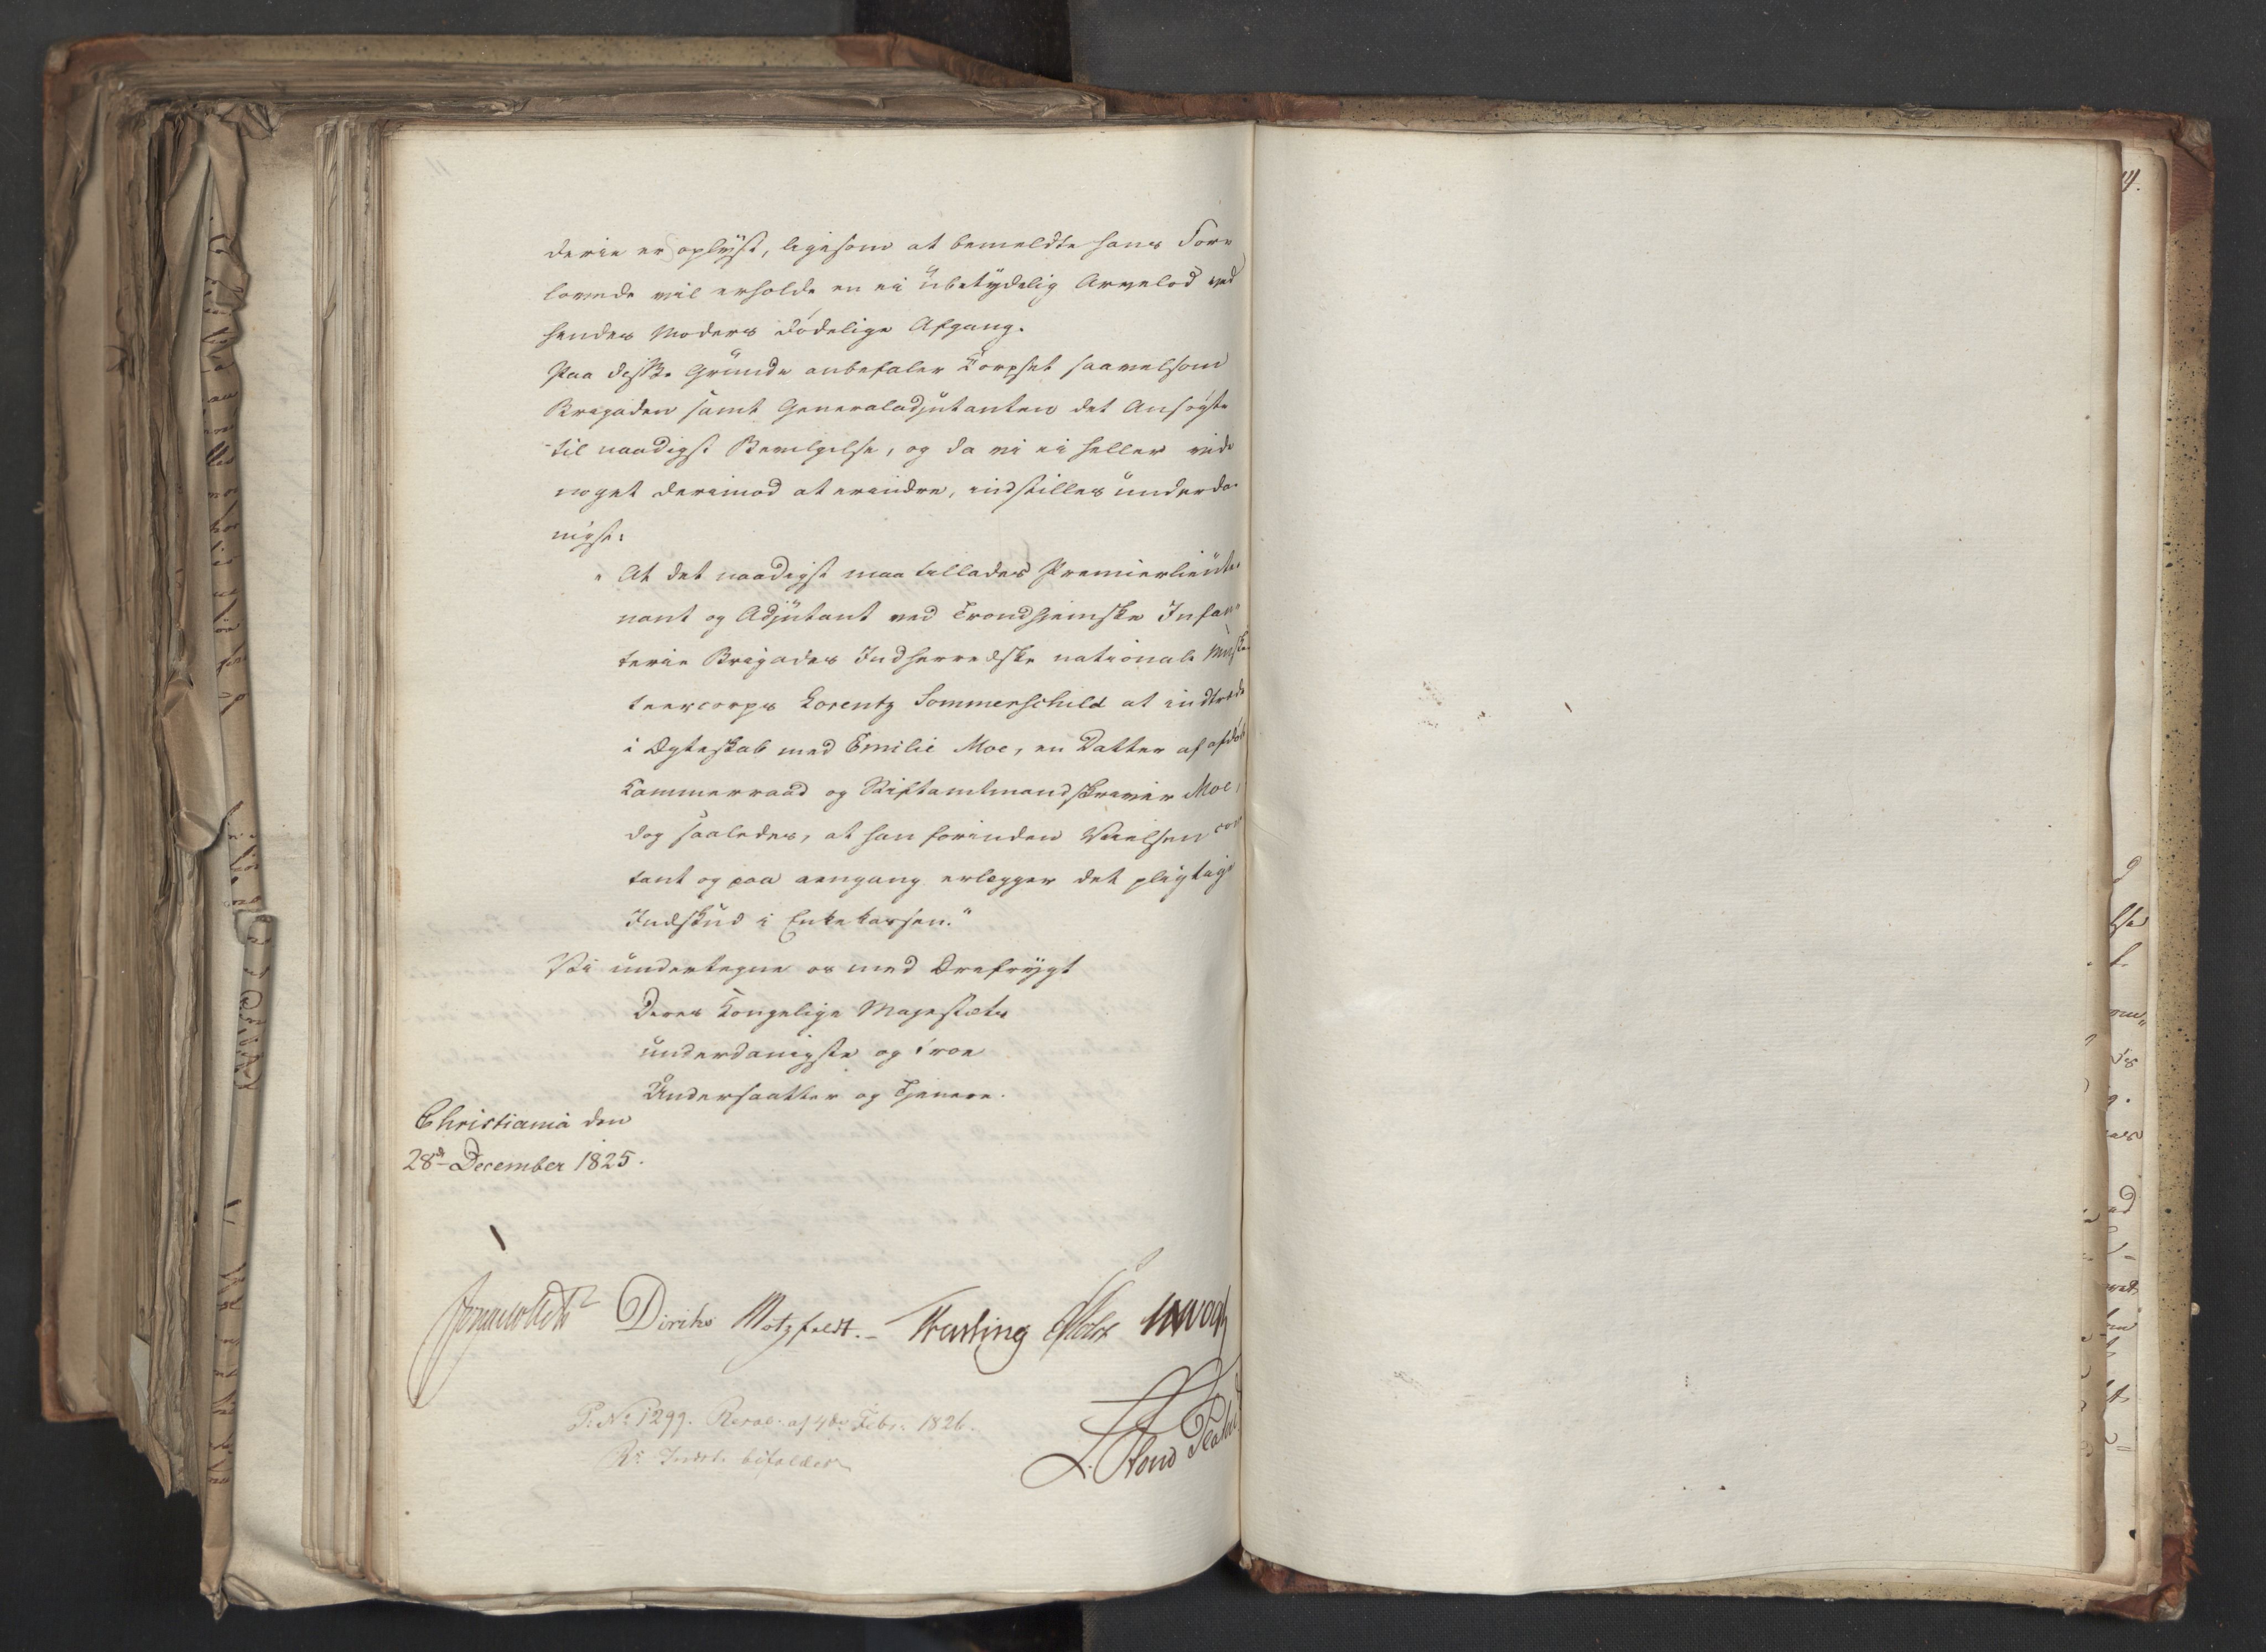 derie er oplyst, ligesom at bemeldte hans For„
lovede vil erholde en ei ubetydelig Arvelod ved
hendes Moders dødelige Afgang.
Paa disse Grunde anbefaler Corpset saavelsom
Brigaden samt Generaladjutanten det Ansøgte
til naadigst Bevilgelse, og da vi ei heller vide
noget derimod at erindre, indstilles underda„
nigst:
„At det naadigst maa tillades Premierlieute„
nant og Adjutant ved Trondhjemske Infan„
terie Brigades Indherredske nationale Muske„
teercorps Lorentz Sommerschild at indtræde
i Ægteskab med Emilie Moe, en Datter af afdøde
Kammerraad og Stiftamtmandskriver Moe,
dog saaledes, at han forinden Vielsen con„
tant og paa eengang erlægger det pligtige
Indskud i Enkekassen."
Vi undertegne os med Ærefrygt
Deres Kongelige Majestæts
underdanigste og troe
Undersaatter og Tjenere.
Christiania den
28de December 1825.
Diriks Motzfeldt. Treschow
P: No 1299. Resol: af 4de Febr: 1826.
Rs Indst. bifaldes